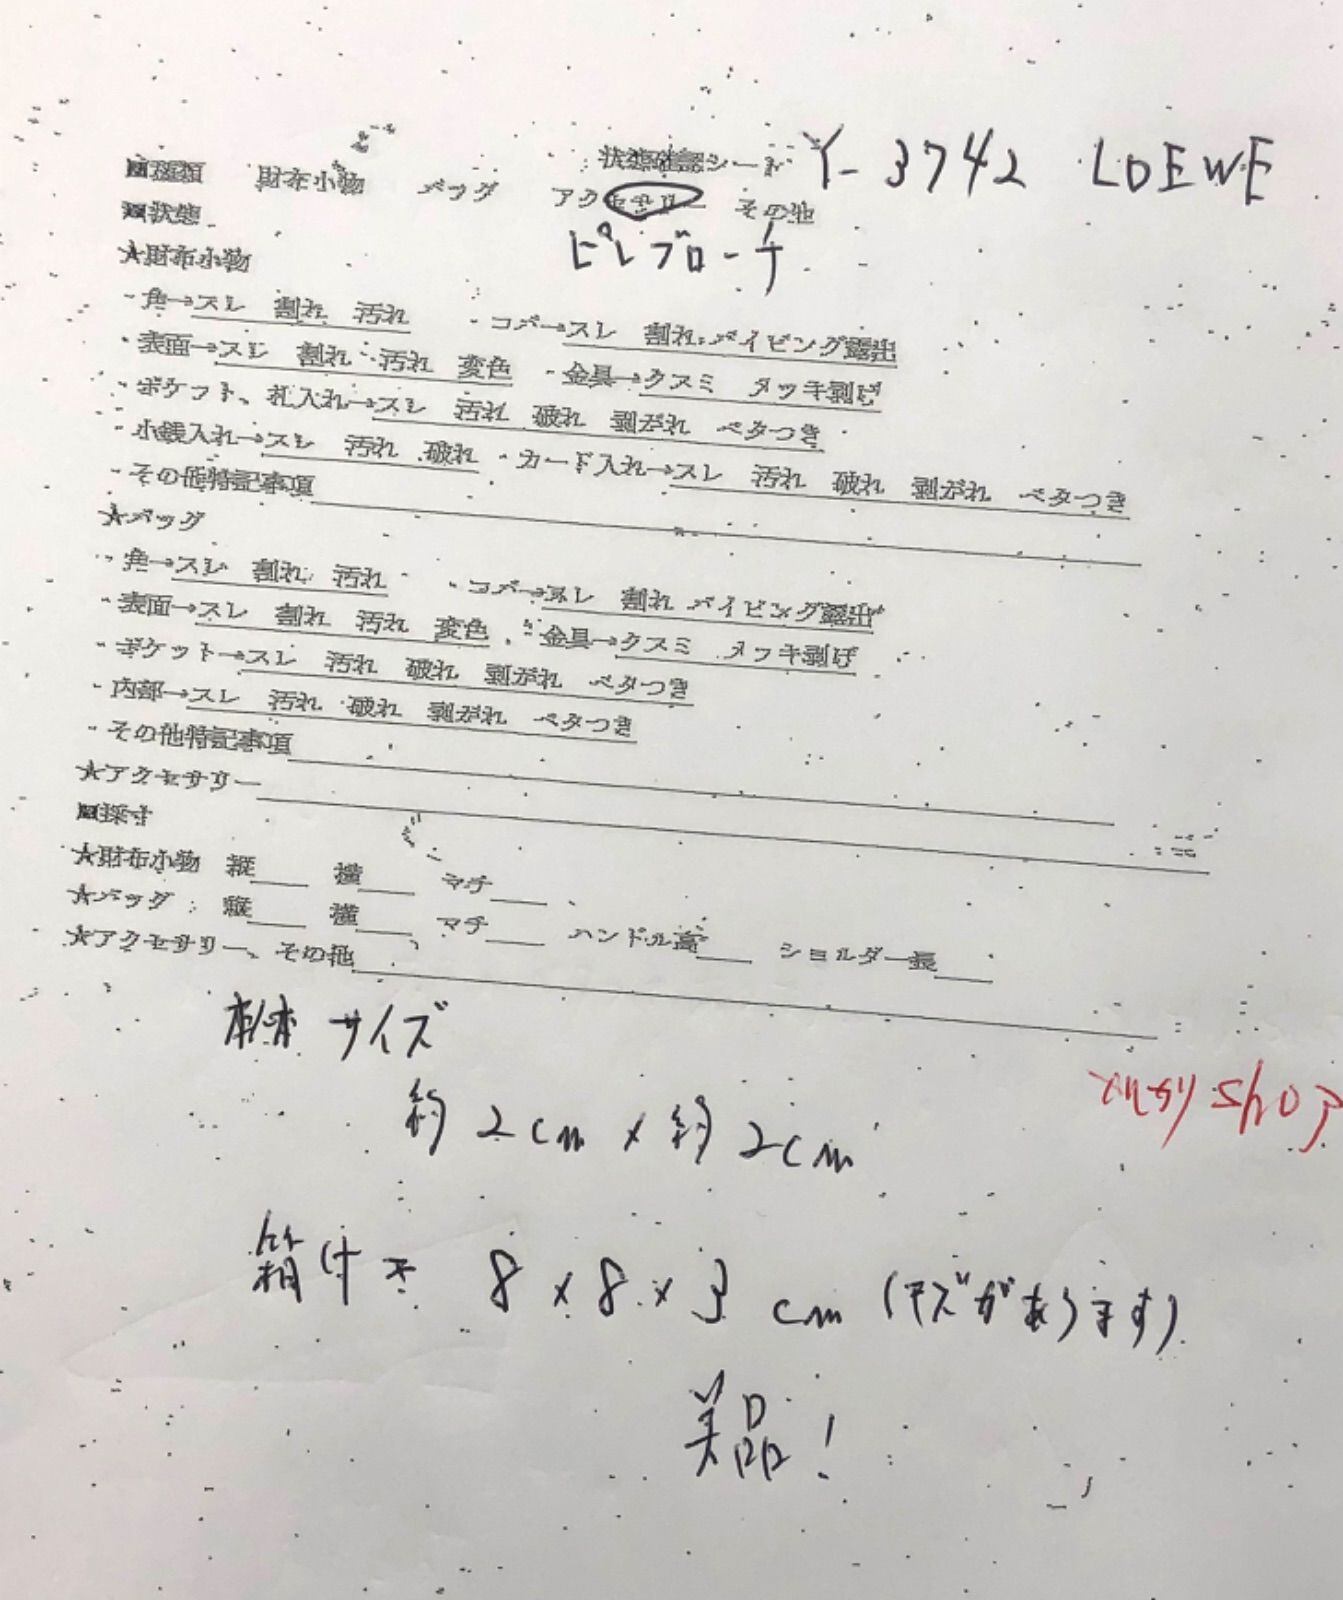 状態確認シート Y-3742 LOEWE
■種類 財布小物 バッグ アクセサリー その他
■状態 ピンブローチ
★財布小物
・角→スレ 割れ 汚れ ・コバ→スレ 割れ パイピング露出
・表面→スレ 割れ 汚れ 変色 ・金具→クスミ メッキ剥げ
・ポケット、札入れ→スレ 汚れ 破れ 剥がれ ベタつき
・小銭入れ→スレ 汚れ 破れ ・カード入れ→スレ 汚れ 破れ 剥がれ ベタつき
・その他特記事項
★バッグ
・角→スレ 割れ 汚れ ・コバ→スレ 割れ パイピング露出
・表面→スレ 割れ 汚れ 変色 ・金具→クスミ メッキ剥げ
・ポケット→スレ 汚れ 破れ 剥がれ ベタつき
・内部→スレ 汚れ 破れ 剥がれ ベタつき
・その他特記事項
★アクセサリー
■採寸
★財布小物 縦 横 マチ
★バッグ 縦 横 マチ ハンドル高 ショルダー長
★アクセサリー、その他
本体サイズ
約2cm×約2cm
shop
箱付き 8×8×3cm(キズがあります)
美品!